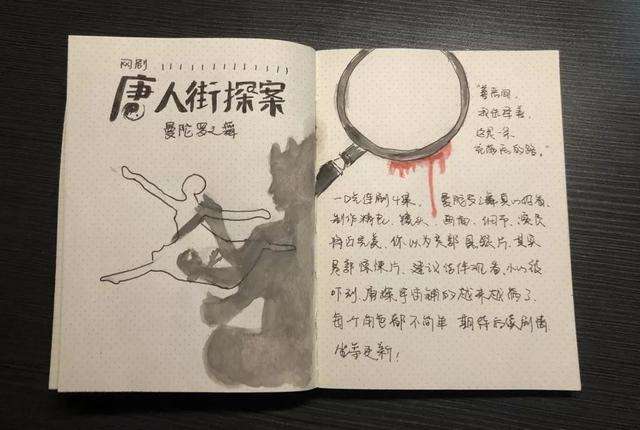 网剧
唐人街探案
曼陀罗之舞
"善与恶,
我选择善,
这是一条
一口气连刷4集, 曼陀罗之舞真心好看,
制作精良, 镜头、画面、细节、演员
将近完美, 你以为是部悬疑片, 其实
是部惊悚片, 建议结伴观看, 小心被
吓到, 唐探宇宙铺的越来越满了
每个角色都不简单 期待后续剧情
坐等更新!